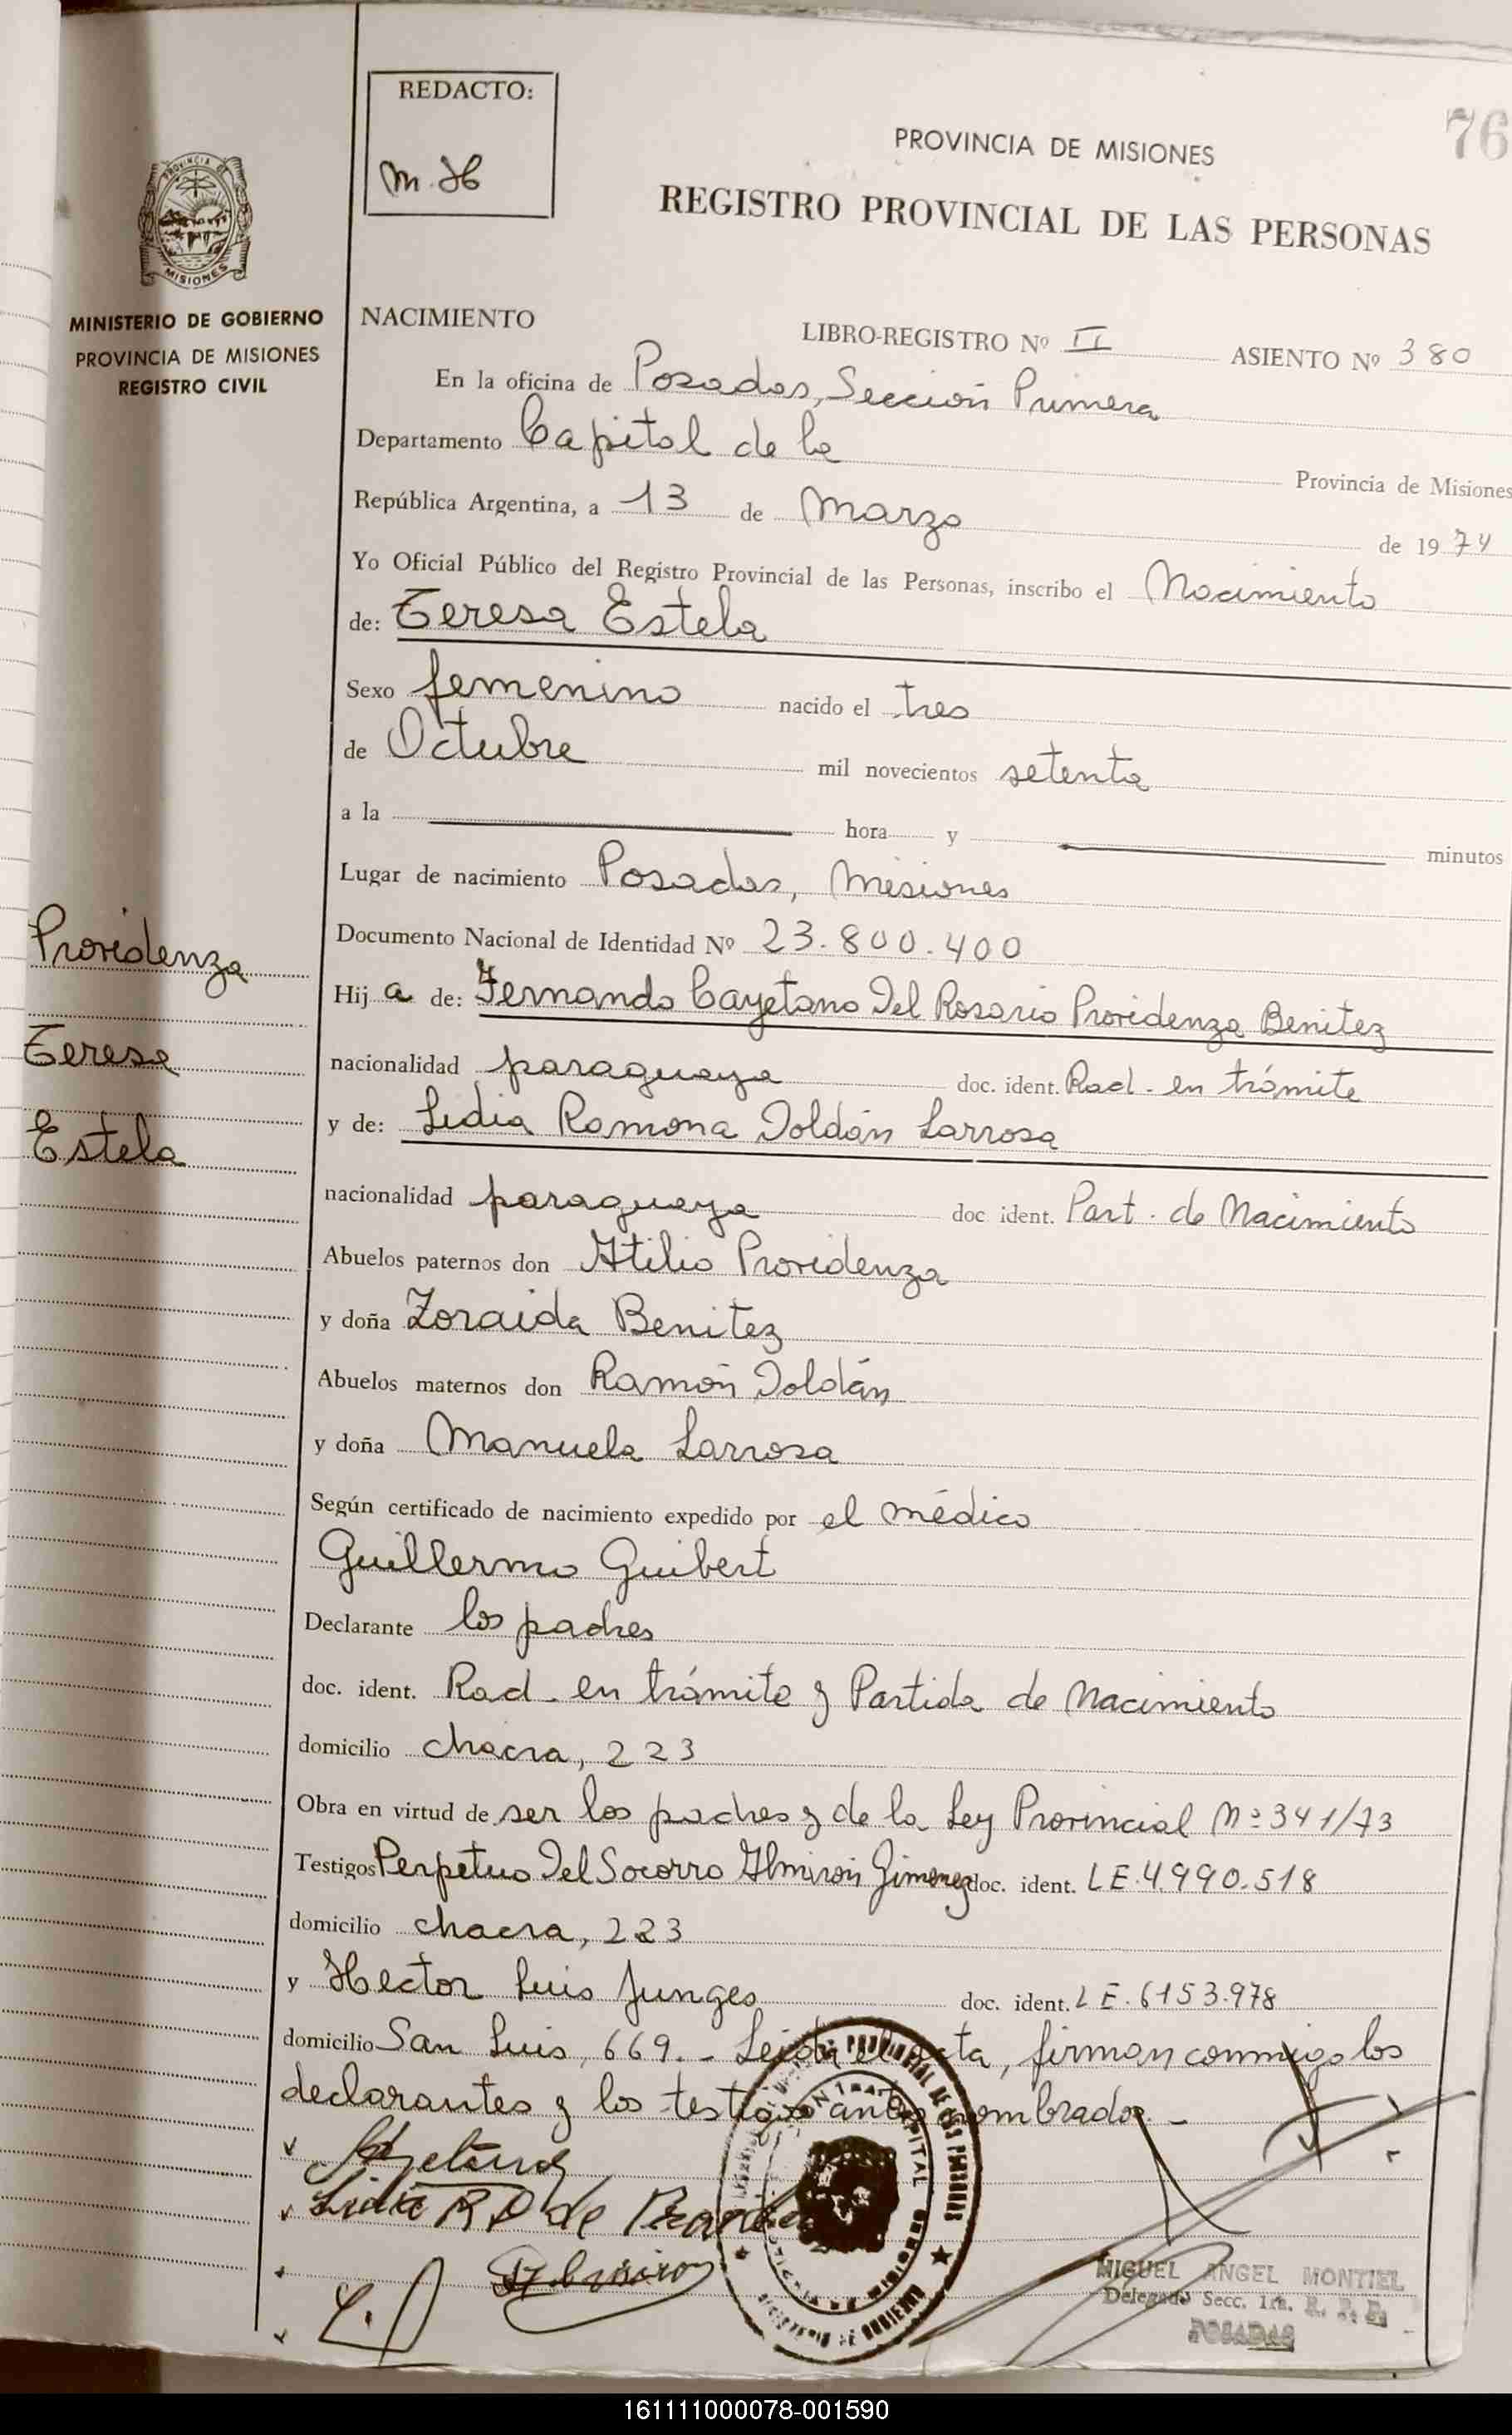 REDACTO:
M.H
76
PROVINCIA DE MISIONES
REGISTRO PROVINCIAL DE LAS PERSONAS
PROVINCIA DE
MISIONES
MINISTERIO DE GOBIERNO
PROVINCIA DE MISIONES
REGISTRO CIVIL
NACIMIENTO
LIBRO-REGISTRO Nº II ASIENTO Nº 380
En la oficina de Posadas, Sección Primera
Departamento Capital de la Provincia de Misiones
República Argentina, a 13 de Marzo de 1974
Yo Oficial Público del Registro Provincial de las Personas, inscribo el Nacimiento
de: Teresa Estela
Sexo femenino nacido el tres
de Octubre mil novecientos setenta
a la hora y minutos
Lugar de nacimiento Posadas, Misiones
Documento Nacional de Identidad Nº 23.800.400
Providenza
Teresa
Estela
Hij a de: Fernando Cayetano Del Rosario Providenza Benitez
nacionalidad paraguaya doc. ident. Rad. en trámite
y de: Lidia Ramona Doldán Larrosa
nacionalidad paraguaya doc ident. Part. de Nacimiento
Abuelos paternos don Atilio Providenza
y doña Zoraida Benitez
Abuelos maternos don Ramón Doldán
y doña Manuela Larrosa
Según certificado de nacimiento expedido por el médico
Guillermo Guibert
Declarante los padres
doc. ident. Rad. en trámite y Partida de Nacimiento
domicilio chacra, 223
Obra en virtud de ser los padres y de la Ley Provincial Nº 341/73
Testigos Perpetuo Del Socorro Almirón Gimenez doc. ident. LE.4.990.518
domicilio chacra, 223
y Hector Luis Junges doc. ident. LE.6153.978
domicilio San Luis, 669.- Leída el acta, firman conmigo los
declarantes y los testigos antes nombrados.-
Lidia R D de
MIGUEL ANGEL MONTIEL
Delegado Secc. 1ra. R. P. P.
POSADAS
161111000078-001590